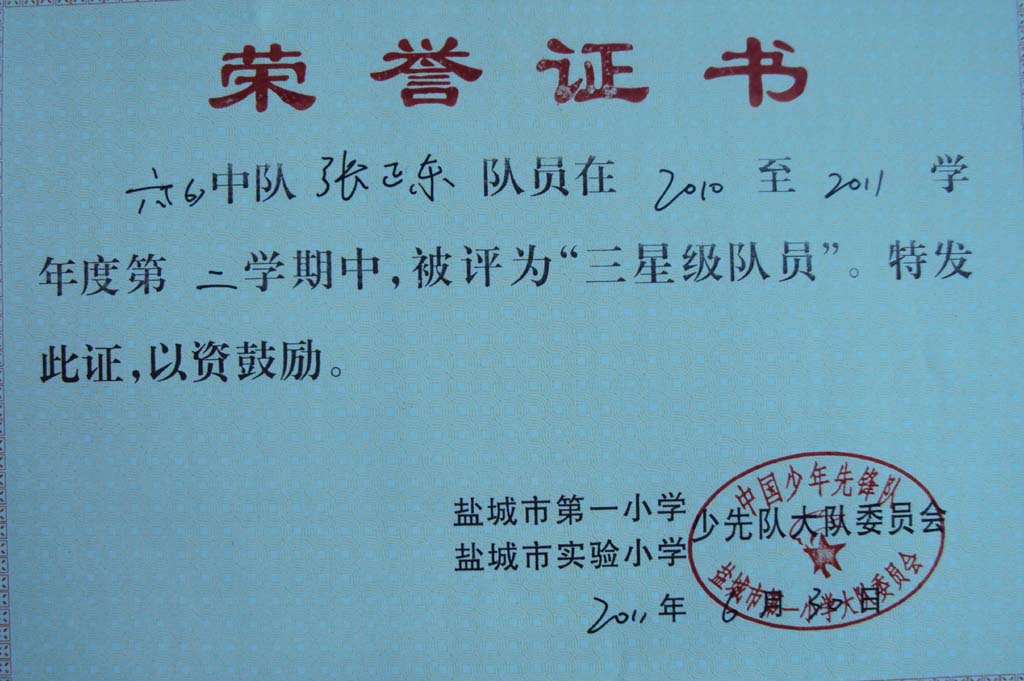 荣誉证书
六6中队 张正东 队员在 2010 至 2011 学
年度第 二 学期中，被评为“三星级队员”。特发
此证，以资鼓励。
盐城市第一小学
盐城市实验小学
少先队大队委员会
2011年 6月 30日
中国少年先锋队
盐城市第一小学大队委员会